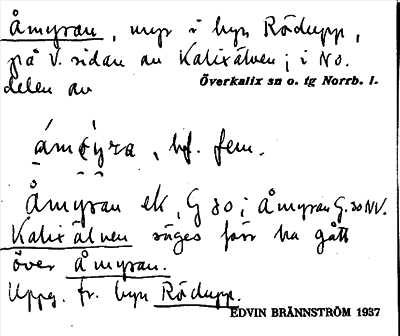 Åmyran, myr i byn Rödupp,
på V. sidan av Kalixälven; i No.
delen av Överkalix sn o. tg Norrb. l.
bf. fem.
Åmyran ek, G 80; Åmyran G.80NV.
Kalix älven säges förr ha gått
över Åmyran.
Uppg. fr. byn Rödupp.
EDVIN BRÄNNSTRÖM 1937